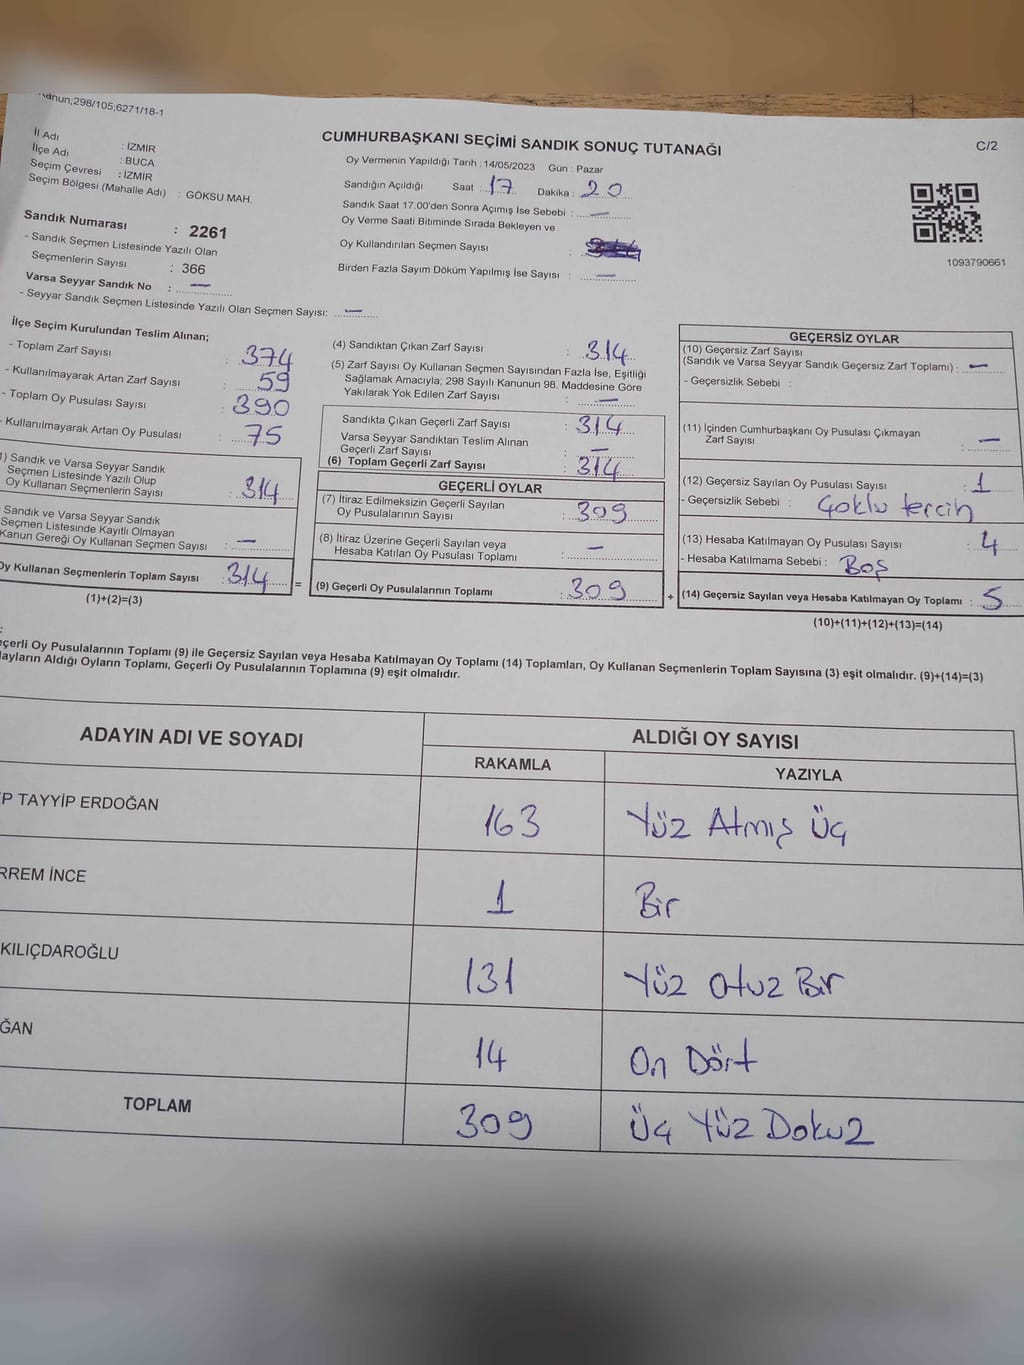 Kanun;298/105;6271/18-1
CUMHURBAŞKANI SEÇİMİ SANDIK SONUÇ TUTANAĞI
C/2
İl Adı : İZMİR
İlçe Adı : BUCA
Seçim Çevresi : İZMİR
Seçim Bölgesi (Mahalle Adı) : GÖKSU MAH.
Oy Vermenin Yapıldığı Tarih : 14/05/2023 Gün : Pazar
Sandığın Açıldığı Saat : 17 Dakika : 20
Sandık Saat 17.00'den Sonra Açımış İse Sebebi : —
Oy Verme Saati Bitiminde Sırada Bekleyen ve
Oy Kullandırılan Seçmen Sayısı :
Birden Fazla Sayım Döküm Yapılmış İse Sayısı : —
1093790661
Sandık Numarası : 2261
- Sandık Seçmen Listesinde Yazılı Olan
Seçmenlerin Sayısı : 366
Varsa Seyyar Sandık No : —
- Seyyar Sandık Seçmen Listesinde Yazılı Olan Seçmen Sayısı: —
İlçe Seçim Kurulundan Teslim Alınan;
- Toplam Zarf Sayısı : 374
- Kullanılmayarak Artan Zarf Sayısı : 59
- Toplam Oy Pusulası Sayısı : 390
- Kullanılmayarak Artan Oy Pusulası : 75
1) Sandık ve Varsa Seyyar Sandık
Seçmen Listesinde Yazılı Olup
Oy Kullanan Seçmenlerin Sayısı : 314
Sandık ve Varsa Seyyar Sandık
Seçmen Listesinde Kayıtlı Olmayan
Kanun Gereği Oy Kullanan Seçmen Sayısı : —
Oy Kullanan Seçmenlerin Toplam Sayısı : 314 =
(1)+(2)=(3)
(4) Sandıktan Çıkan Zarf Sayısı : 314
(5) Zarf Sayısı Oy Kullanan Seçmen Sayısından Fazla İse, Eşitliği
Sağlamak Amacıyla; 298 Sayılı Kanunun 98. Maddesine Göre
Yakılarak Yok Edilen Zarf Sayısı : —
Sandıkta Çıkan Geçerli Zarf Sayısı : 314
Varsa Seyyar Sandıktan Teslim Alınan
Geçerli Zarf Sayısı : —
(6) Toplam Geçerli Zarf Sayısı : 314
GEÇERLİ OYLAR
(7) İtiraz Edilmeksizin Geçerli Sayılan
Oy Pusulalarının Sayısı : 309
(8) İtiraz Üzerine Geçerli Sayılan veya
Hesaba Katılan Oy Pusulası Toplamı : —
(9) Geçerli Oy Pusulalarının Toplamı : 309 +
GEÇERSİZ OYLAR
(10) Geçersiz Zarf Sayısı
(Sandık ve Varsa Seyyar Sandık Geçersiz Zarf Toplamı) : —
- Geçersizlik Sebebi :
(11) İçinden Cumhurbaşkanı Oy Pusulası Çıkmayan
Zarf Sayısı : —
(12) Geçersiz Sayılan Oy Pusulası Sayısı : 1
- Geçersizlik Sebebi : Çoklu tercih
(13) Hesaba Katılmayan Oy Pusulası Sayısı : 4
- Hesaba Katılmama Sebebi : Boş
(14) Geçersiz Sayılan veya Hesaba Katılmayan Oy Toplamı : 5
(10)+(11)+(12)+(13)=(14)
eçerli Oy Pusulalarının Toplamı (9) ile Geçersiz Sayılan veya Hesaba Katılmayan Oy Toplamı (14) Toplamları, Oy Kullanan Seçmenlerin Toplam Sayısına (3) eşit olmalıdır. (9)+(14)=(3)
dayların Aldığı Oyların Toplamı, Geçerli Oy Pusulalarının Toplamına (9) eşit olmalıdır.
ADAYIN ADI VE SOYADI ALDIĞI OY SAYISI
RAKAMLA YAZIYLA
P TAYYİP ERDOĞAN 163 Yüz Atmış Üç
RREM İNCE 1 Bir
KILIÇDAROĞLU 131 Yüz Otuz Bir
ĞAN 14 On Dört
TOPLAM 309 Üç Yüz Dokuz